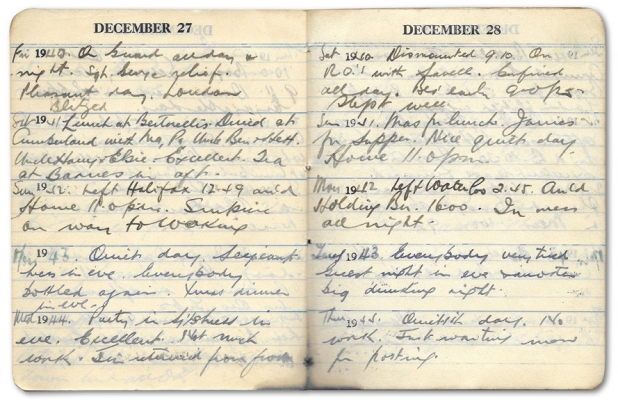 DECEMBER 27
Fri 1940. On Guard all day &
night. Sgt. relief.
Pleasant day. London
Blitzed
Sat 1941 Lunch at Dined at
Cumberland with Ma, Pa, Uncle Ben &
Uncle Harry & Elsie. Excellent. Tea
at Barnes in aft.
Sun 1942. Left Halifax 12.49 arr'd
Home 11.0 pm.
on way to Woking
1943. Quiet day. Sergeants
mess in eve. Everybody
bottled again Xmas dinner
in eve.
Wed 1944. Party in Sgts Mess in
eve. Excellent. Not much
work. returned from
DECEMBER 28
Sat 1940. Dismounted 9.10. On
R.O.'s with Confined
all day. Bed early 9.0 pm.
Slept well.
Sun 1941. Mas for lunch.
for supper. Nice quiet day.
Home 11.0 pm.
Mon 1942 Left Waterloo 2.45. Arr'd
Holding Bn. 16.00. In mess
all night.
Tues 1943 Everybody very tired
Guest night in eve & another
big drinking night.
Thur 1944. Quietish day. No
work. Just waiting now
for posting.